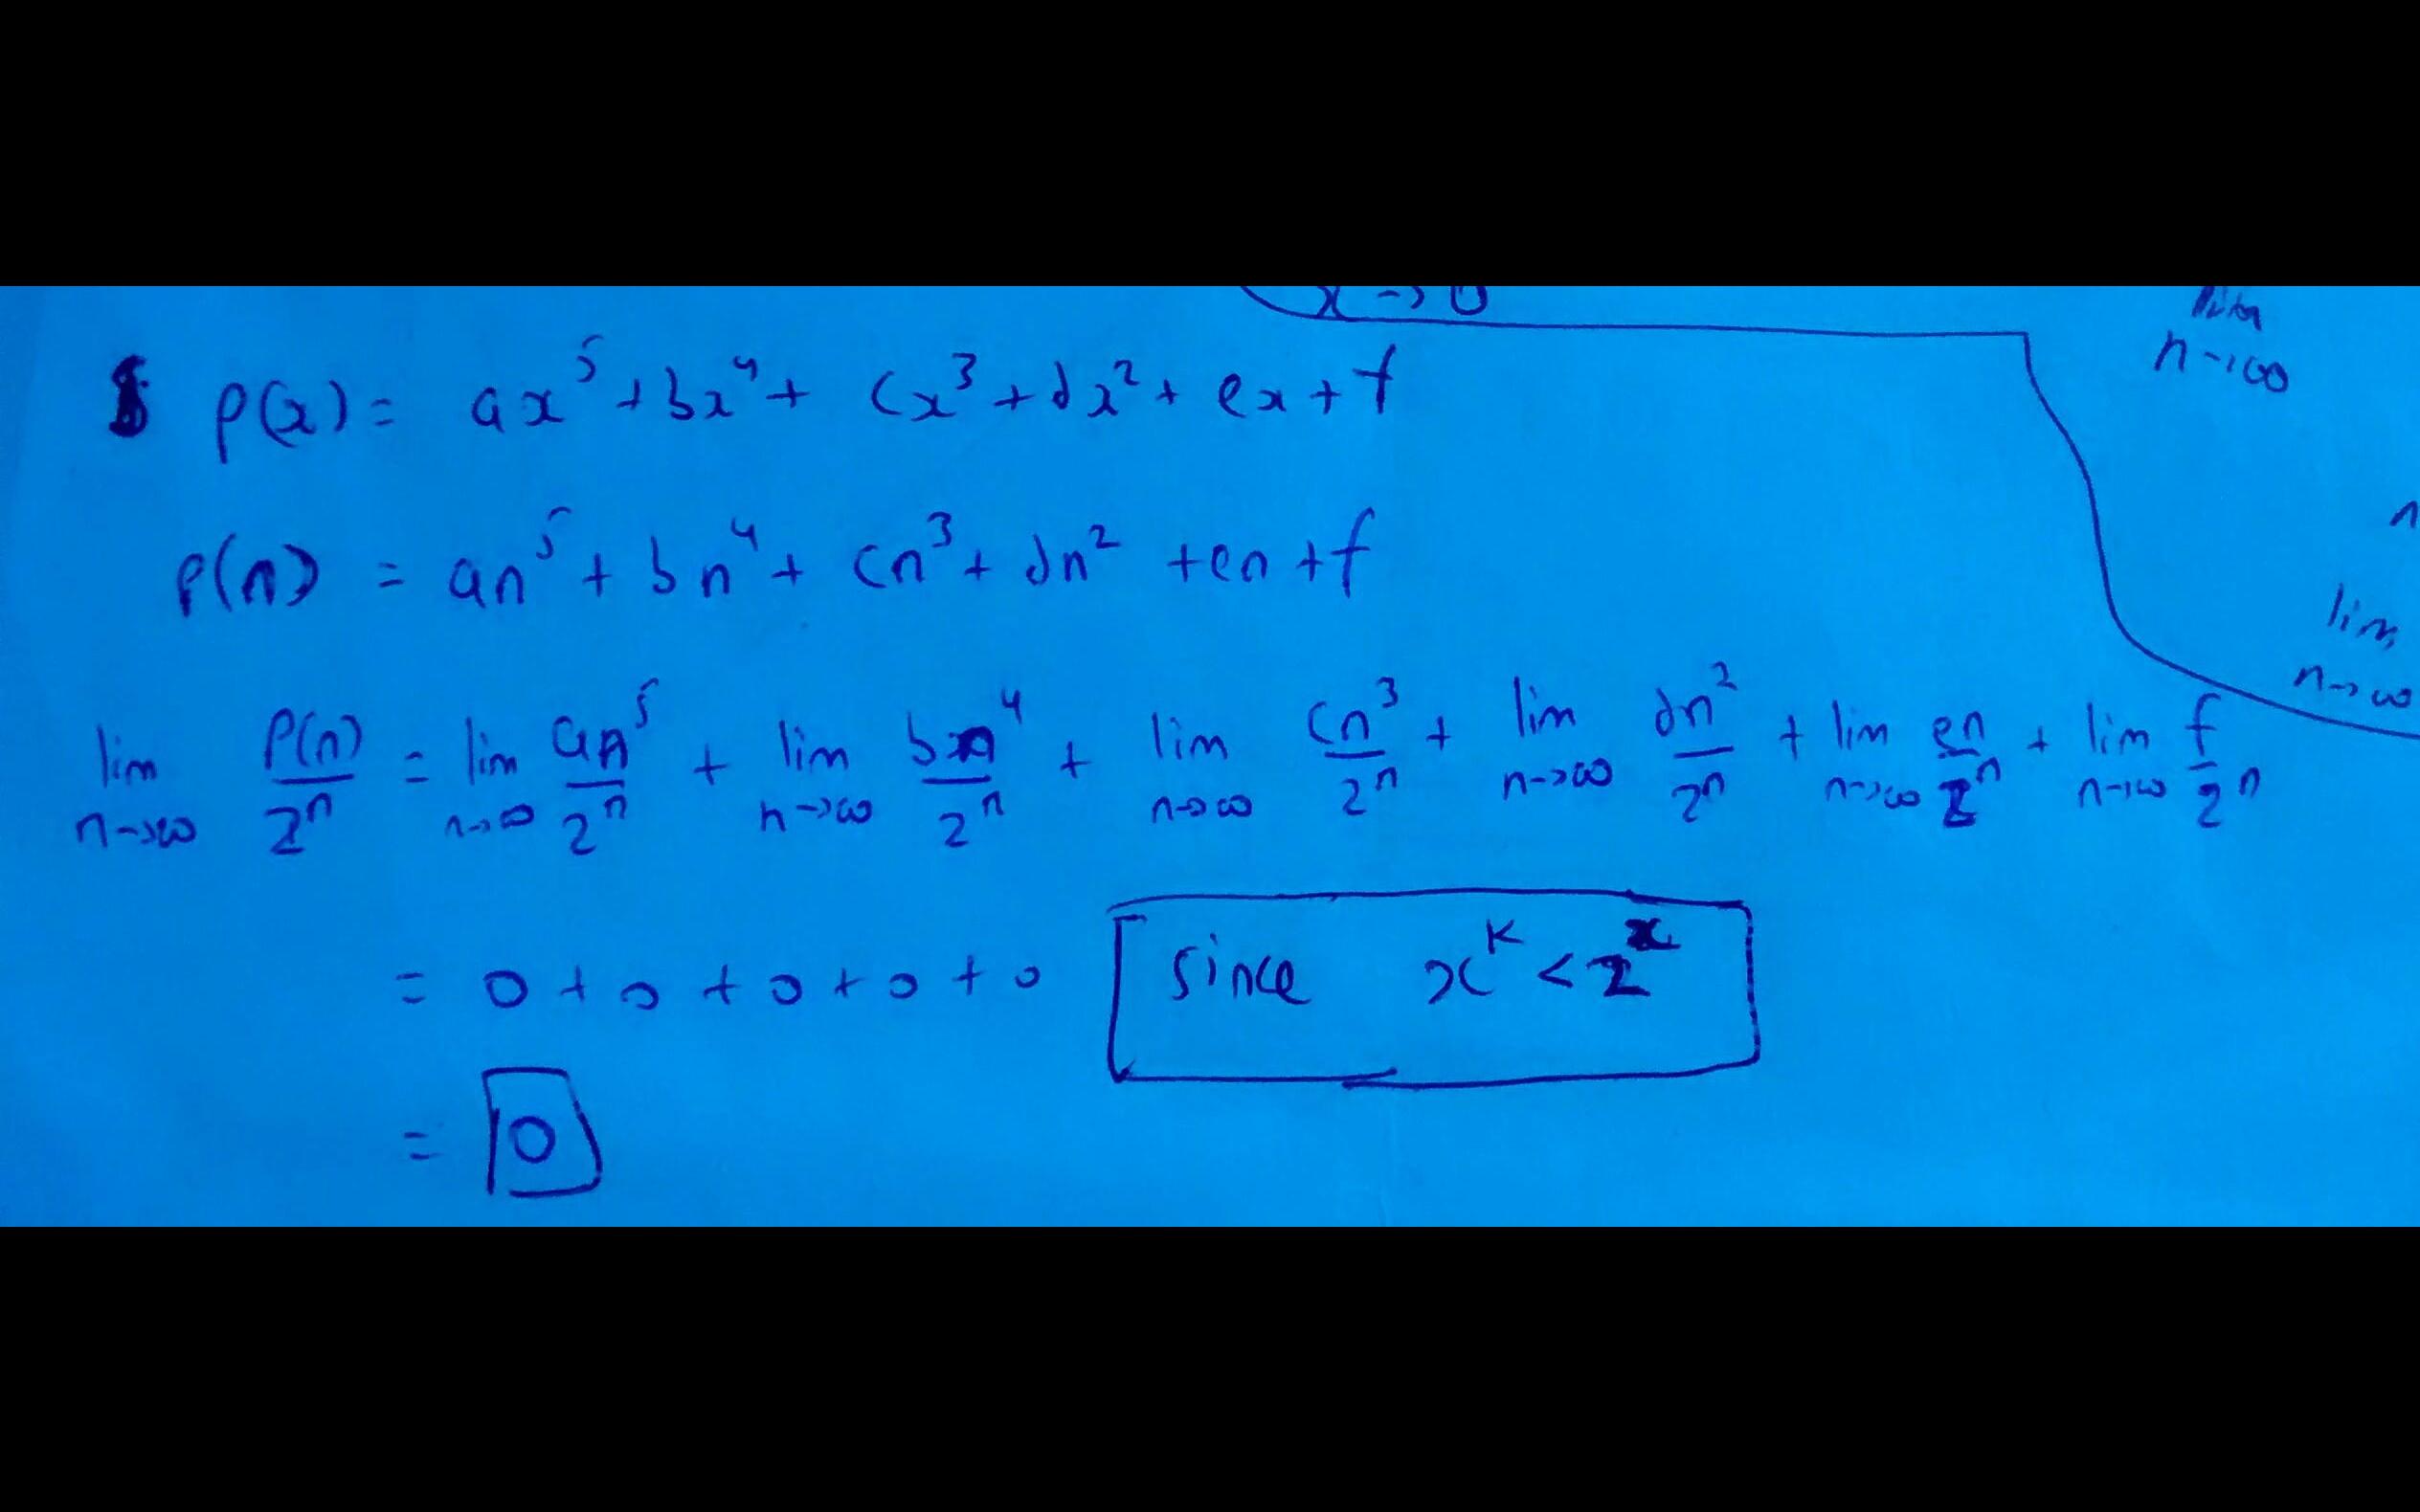 x→0
n→∞
p(x) = ax⁵ + bx⁴ + cx³ + dx² + ex + f
p(n) = an⁵ + bn⁴ + cn³ + dn² + en + f
lim
n→∞
lim n→∞ P(n)/2ⁿ = lim n→∞ an⁵/2ⁿ + lim n→∞ bn⁴/2ⁿ + lim n→∞ cn³/2ⁿ + lim n→∞ dn²/2ⁿ + lim n→∞ en/2ⁿ + lim n→∞ f/2ⁿ
= 0 + 0 + 0 + 0 + 0 since xᴷ < 2ˣ
= 0